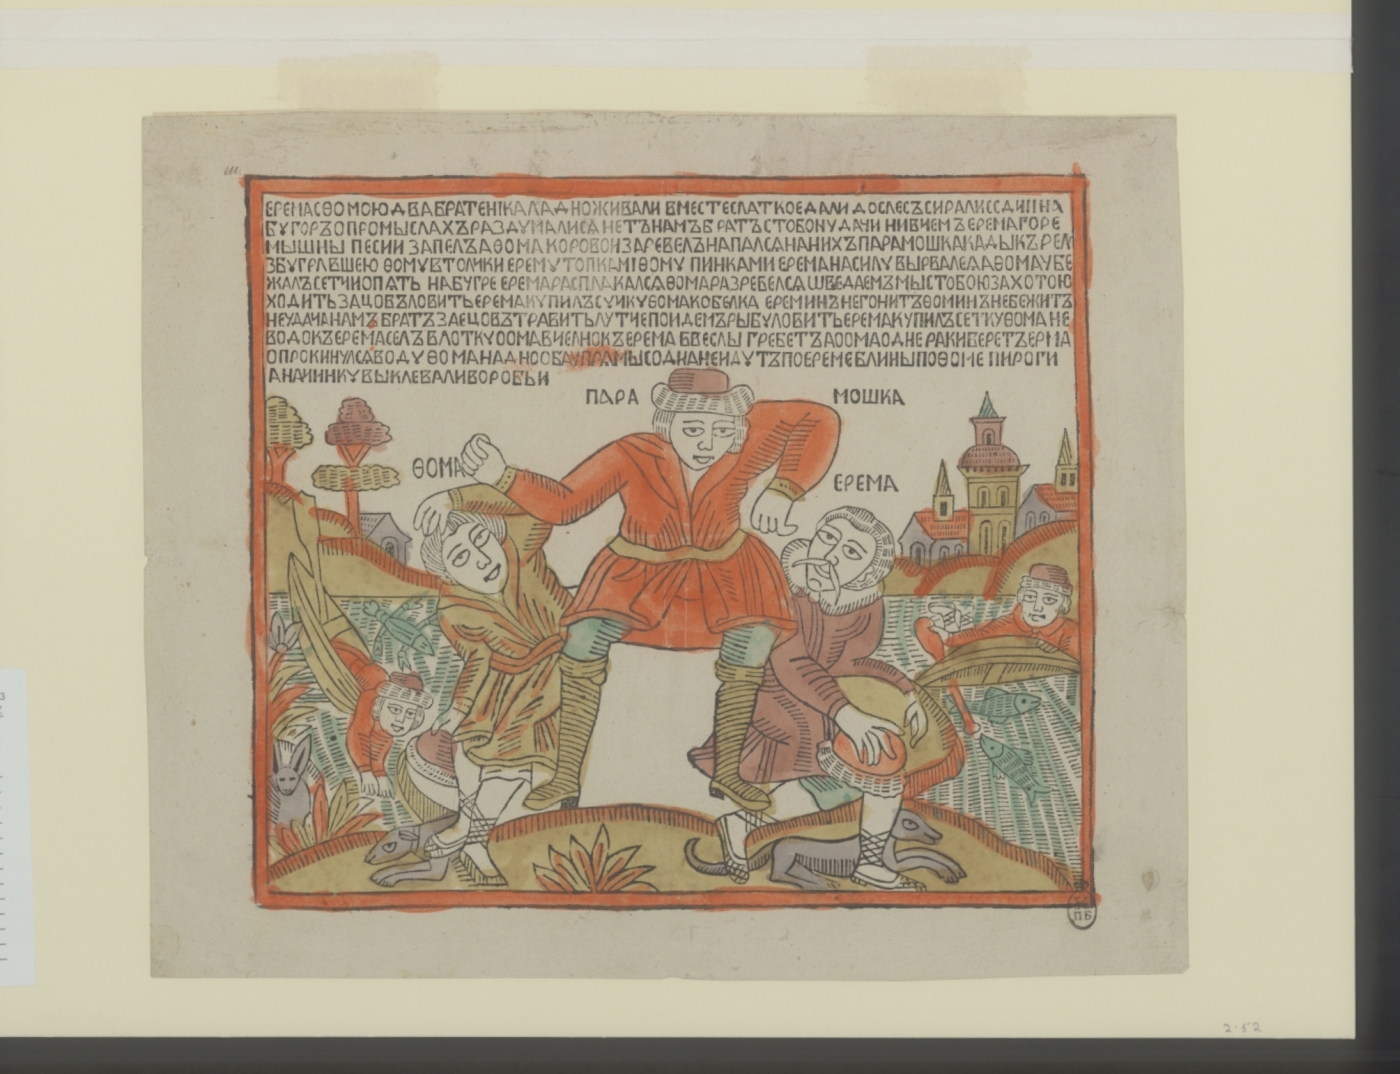 ЕРЕМА СѲОМОЮ ДВА БРАТЕНІКА ЛАДНО ЖИВАЛИ ВМЕСТЕ СЛАТКО ЕДАЛИ
БУГОРЪ О ПРОМЫСЛАХЪ РАЗДУМАЛИСѦ НЕТЪ НАМЪ БРАТЪ СТОБОЮ УДАЧИ НИ ВЧЕМЪ ЕРЕМА ГОРЕ
МЫШНЫ ПЕСНИ ЗАПЕЛЪ А ѲОМА КОРОВОИ ЗАРЕВЕЛЪ НАПАЛСѦ НА НИХЪ ПАРАМОШКА КАДЫКЪ
ЗБУГРА ВШЕЮ ѲОМУ ВТОЛЧКИ ЕРЕМУ ТОПКАМІ ѲОМУ ПИНКАМИ ЕРЕМА НАСИЛУ ВЫРВАЛСѦ А ѲОМА УБЕ
ЖАЛЪ СЕТЧИ ОПѦТЬ НА БУГРЕ ЕРЕМА РАСПЛАКАЛСѦ ѲОМА РАЗРЕВЕЛСѦ ШВЕДАЕМЪ МЫ СТОБОЮ ЗА ХОТОЮ
ХОДИТЬ ЗАЦОВЪ ЛОВИТЬ ЕРЕМА КУПИЛЪ СУЧКУ ѲОМА КОБЕЛКА ЕРЕМИНЪ НЕ ГОНИТЪ ѲОМИНЪ НЕ БЕЖИТЪ
НЕУДАЧА НАМЪ БРАТЪ ЗАЕЦОВЪ ТРАВИТЬ ЛУТЧЕ ПОИДЕМЪ РЫБУ ЛОВИТЬ ЕРЕМА КУПИЛЪ СЕТКУ ѲОМА НЕ
ВОДОКЪ ЕРЕМА СЕЛЪ ВЛОТКУ ѲОМА ВЧЕЛНОКЪ ЕРЕМА ВВЕСЛЫ ГРЕБЕТЪ А ѲОМА О ДНЕ РАКИ БЕРЕТЪ
ОПРОКИНУЛСѦ ВОДУ ѲОМА НА ДНО ОБА УПРѦМЫ СО ДНА НЕИДУТЪ ПО ЕРЕМЕ БЛИНЫ ПО ѲОМЕ ПИРОГИ
А НАЧИНКУ ВЫКЛЕВАЛИ ВОРОБЬИ
ПАРА МОШКА
ѲОМА
ЕРЕМА
ПБ
2·52